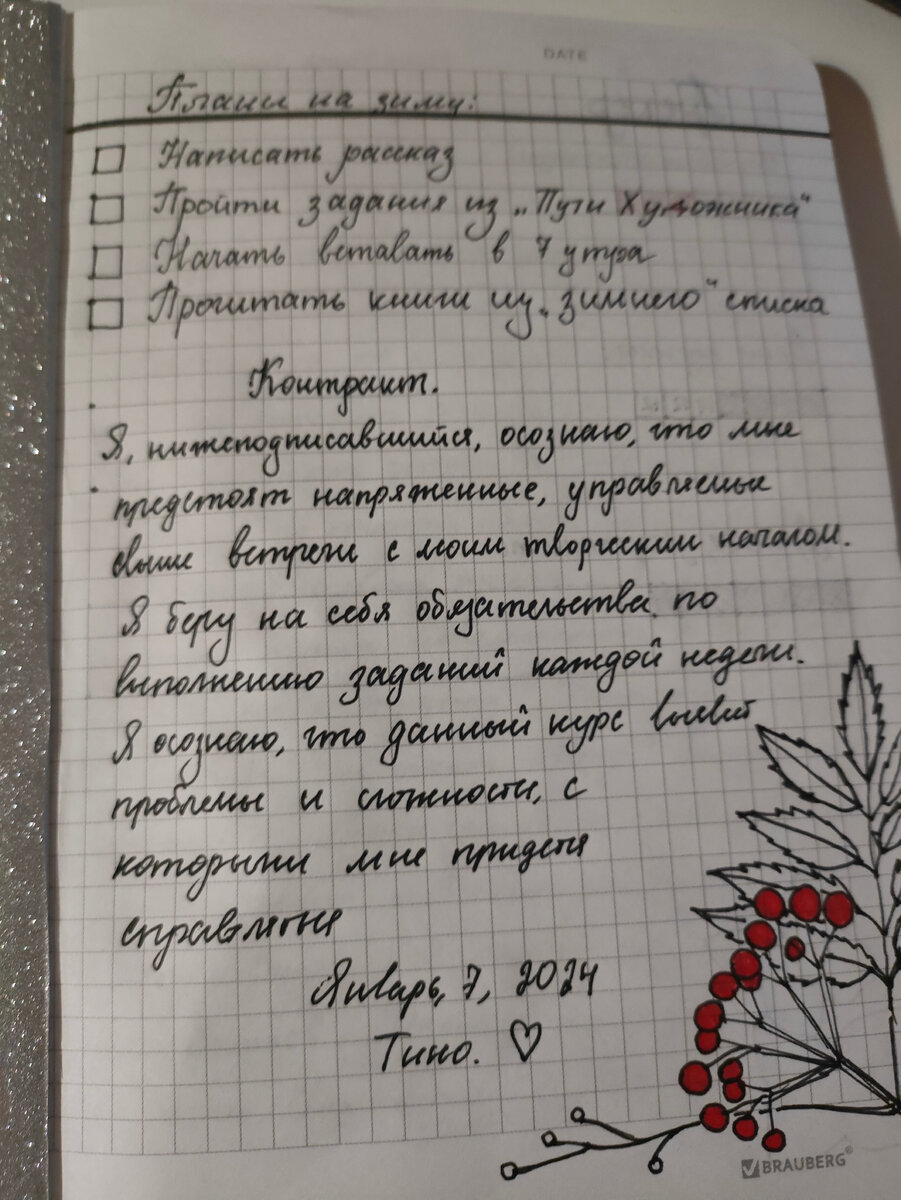 DATE
Планы на зиму:
Написать рассказ
Пройти задания из „Пути Художника"
Начать вставать в 7 утра
Прочитать книги из „зимнего" списка
Контракт.
Я, нижеподписавшийся, осознаю, что мне
предстоят напряженные, управляемые
свыше встречи с моим творческим началом.
Я беру на себя обязательства по
выполнению заданий каждой недели.
Я осознаю, что данный курс выявит
проблемы и сложности, с
которыми мне придется
справляться
Январь, 7, 2024
Тино. ♡
BRAUBERG®